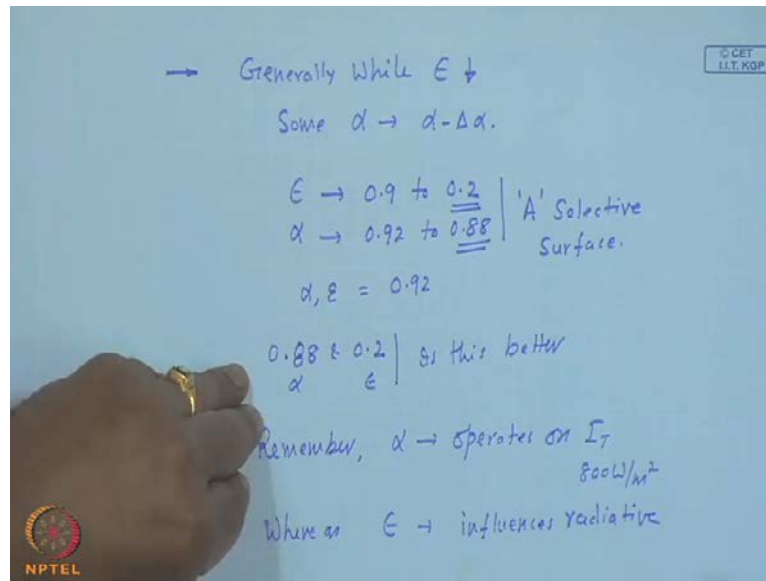 © CET
I.I.T. KGP
→ Generally While ∈ ↓
Some α → α-Δα.
∈ → 0.9 to 0.2 | 'A' Selective
α → 0.92 to 0.88 | Surface.
α, ε = 0.92
0.88 & 0.2 | Is this better
α ∈
Remember, α → operates on I_T
800W/m²
Where as ∈ → influences radiative
NPTEL